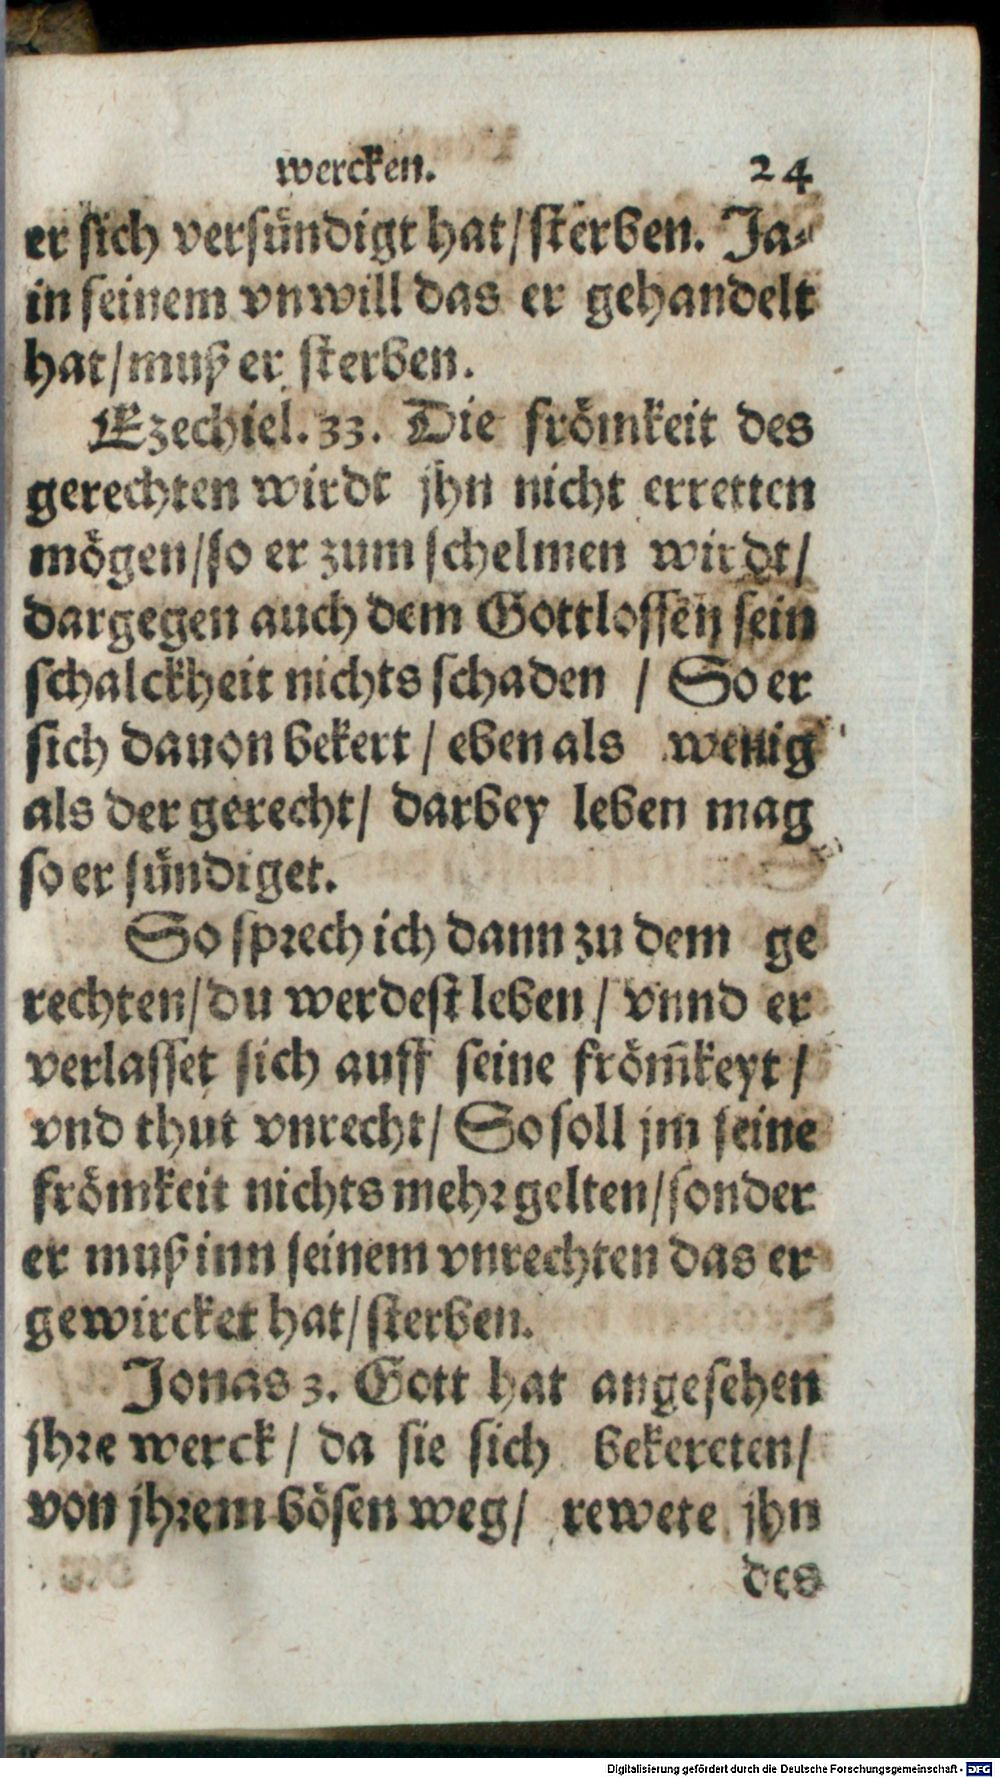 wercken. 24
er sich versündigt hat/sterben. Ja-
in seinem vnwill das er gehandelt
hat/muß er sterben.
Ezechiel. 33. Die frömkeit des
gerechten wirdt jhn nicht erretten
mögen/so er zum schelmen wirdt/
dargegen auch dem Gottlossen sein
schalckheit nichts schaden / So er
sich dauon bekert / eben als wenig
als der gerecht/ darbey leben mag
so er sündiget.
So sprech ich dann zu dem ge
rechten/du werdest leben / vnnd er
verlasset sich auff seine from̄keyt /
vnd thut vnrecht/ So soll jm seine
frömkeit nichts mehr gelten/sonder
er muß inn seinem vnrechten das er
gewircket hat/sterben.
Jonas 3. Gott hat angesehen
jhre werck / da sie sich bekereten/
von jhrem bösen weg/ rewete jhn
des
Digitalisierung gefördert durch die Deutsche Forschungsgemeinschaft - DFG